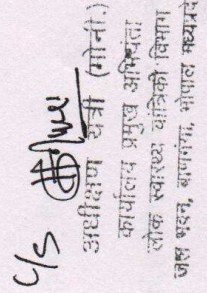 C/S
अधीक्षण यंत्री
कार्यालय प्रमुख अभियंता
लोक स्वास्थ्य यांत्रिकी विभाग
जल भवन, बाणगंगा, भोपाल मध्यप्रदेश